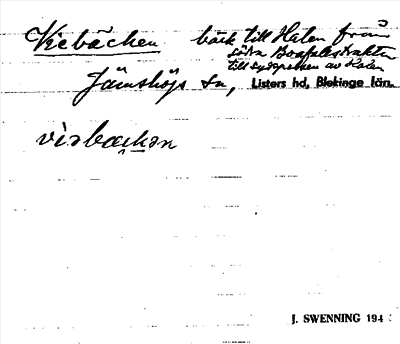 Viebäcken bäck till Halen från
södra Boafallstrakten
till sydspetsen av Halen
Jämshögs sn, Listers hd, Blekinge län.
viəbackən
J. SWENNING 194